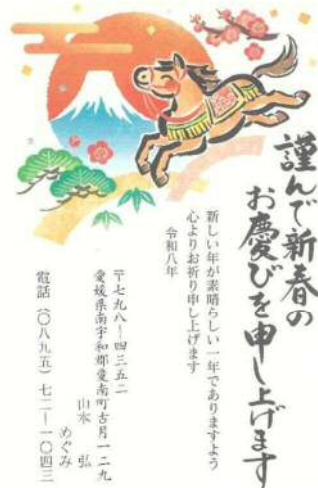 謹んで新春の
お慶びを申し上げます
新しい年が素晴らしい一年でありますよう
心よりお祈り申し上げます
令和八年
〒七九八ー四三五二
愛媛県南宇和郡愛南町古月一二九
山本　弘
めぐみ
電話（〇八九五）七二ー一〇四三